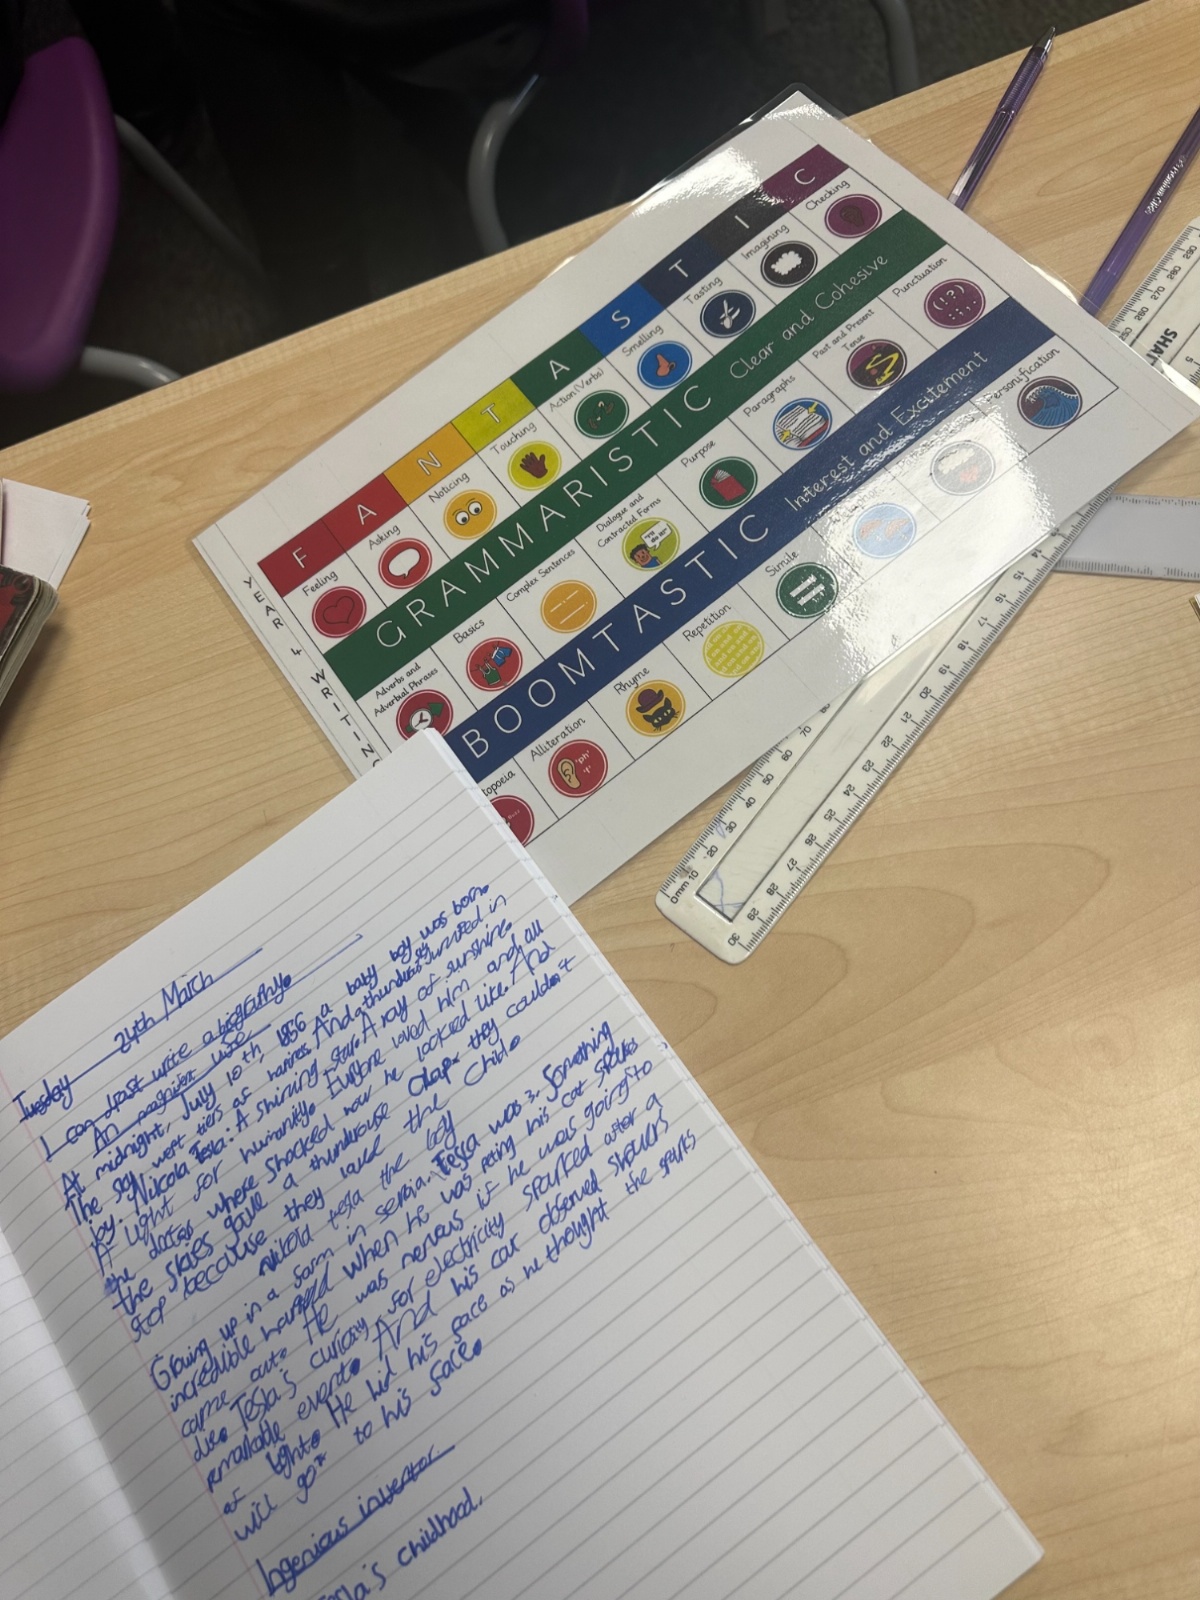 F A N T A S T I C
Feeling Asking Noticing Touching Action (Verbs) Smelling Tasting Imagining Checking
GRAMMARISTIC Clear and Cohesive
Adverbs and Adverbial Phrases Basics Complex Sentences Dialogue and Contracted Forms Purpose Paragraphs Past and Present Tense Punctuation
BOOMTASTIC Interest and Excitement
topoeia Alliteration Rhyme Repetition Simile Personification
YEAR 4 WRITING
Tuesday 24th March
I can draft write a biography.
An
At midnight, July 10th, 1856 a baby boy was born.
The sky wept tiers of And a thunderous in
joy. Nikola Tesla: A shining star. A ray of sunshine.
A light for humanity. Everyone loved him and all
the doctors where shocked how he looked like. And
the skies gave a thunderouse clap. they couldn't
stop because they love the child.
Nikola tesla the boy
Growing up in a farm in serbia. Tesla was 3. Something
incredible when he was peting his cat sparks
came out. He was nervous if he was going to
die. Tesla's curiozity for electricity sparked after a
remarkable event. And his cat observed showers
of light. He hid his face as he thought the sparks
will go to his face.
Ingenious inventor
Tesla's childhood,
0mm 10 20 30 40 50 60 70 80
14 15 16 17 18 19 20 21 22 23 24 25 26 27 28 29 30